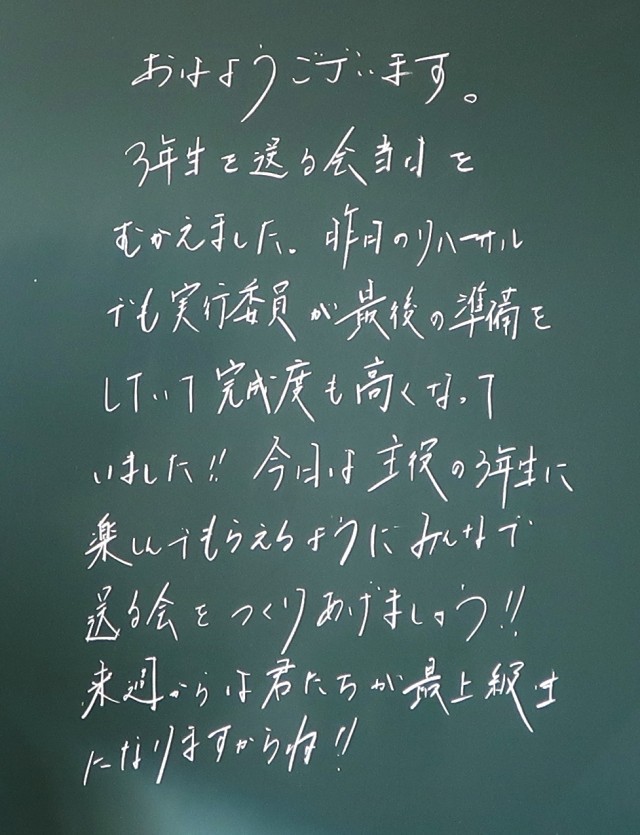 おはようございます。
3年生を送る会当日を
むかえました。昨日のリハーサル
でも実行委員が最後の準備を
していて完成度も高くなって
いました!! 今日は主役の3年生に
楽しんでもらえるようにみんなで
送る会をつくりあげましょう!!
来週からは君たちが最上級生
になりますからね!!